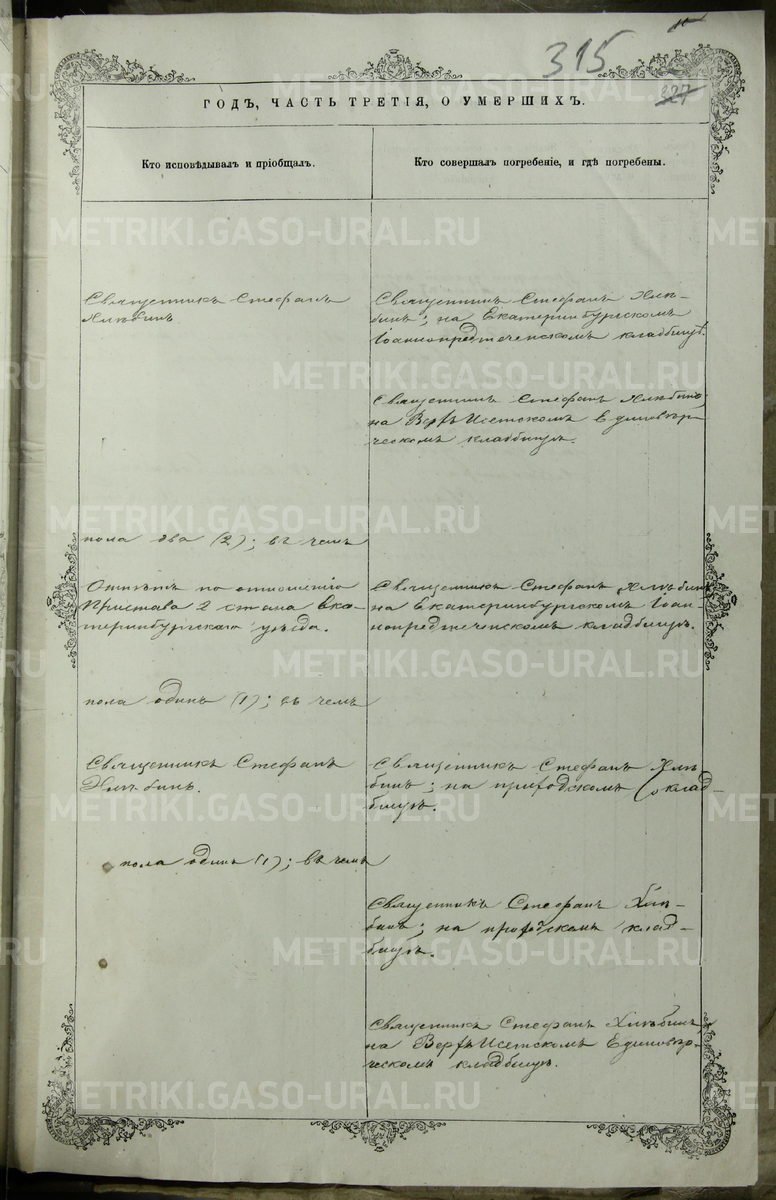 315
327
ГОДЪ, ЧАСТЬ ТРЕТІЯ, О УМЕРШИХЪ.
Кто исповѣдывалъ и пріобщалъ.
Кто совершалъ погребеніе, и гдѣ погребены.
Священникъ Стефанъ
Хлѣбинъ
Священникъ Стефанъ Хлѣ-
бинъ; на Екатеринбургскомъ
Іоаннопредтеченскомъ кладбищѣ.
Священникъ Стефанъ Хлѣбинъ;
на Верхъ Исетскомъ Единовѣр-
ческомъ кладбищѣ.
пола два (2); въ чемъ
Отпѣтъ по отношенію
Пристава 2 стана Ека-
теринбургскаго уѣзда.
Священникъ Стефанъ Хлѣбинъ
на Екатеринбургскомъ Іоан-
нопредтеченскомъ кладбищѣ.
пола одинъ (1); въ чемъ
Священникъ Стефанъ
Хлѣбинъ.
Священникъ Стефанъ Хлѣ-
бинъ; на приходскомъ клад-
бищѣ.
пола одинъ (1); въ чемъ
Священникъ Стефанъ Хлѣ-
бинъ; на приходскомъ клад-
бищѣ.
Священникъ Стефанъ Хлѣбинъ,
на Верхъ Исетскомъ Единовѣр-
ческомъ кладбищѣ.
METRIKI.GASO-URAL.RU